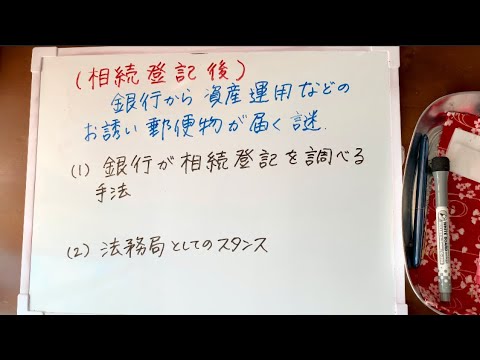 (相続登記後)
銀行から資産運用などの
お誘い郵便物が届く謎.
(1) 銀行が相続登記を調べる
手法
(2) 法務局としてのスタンス